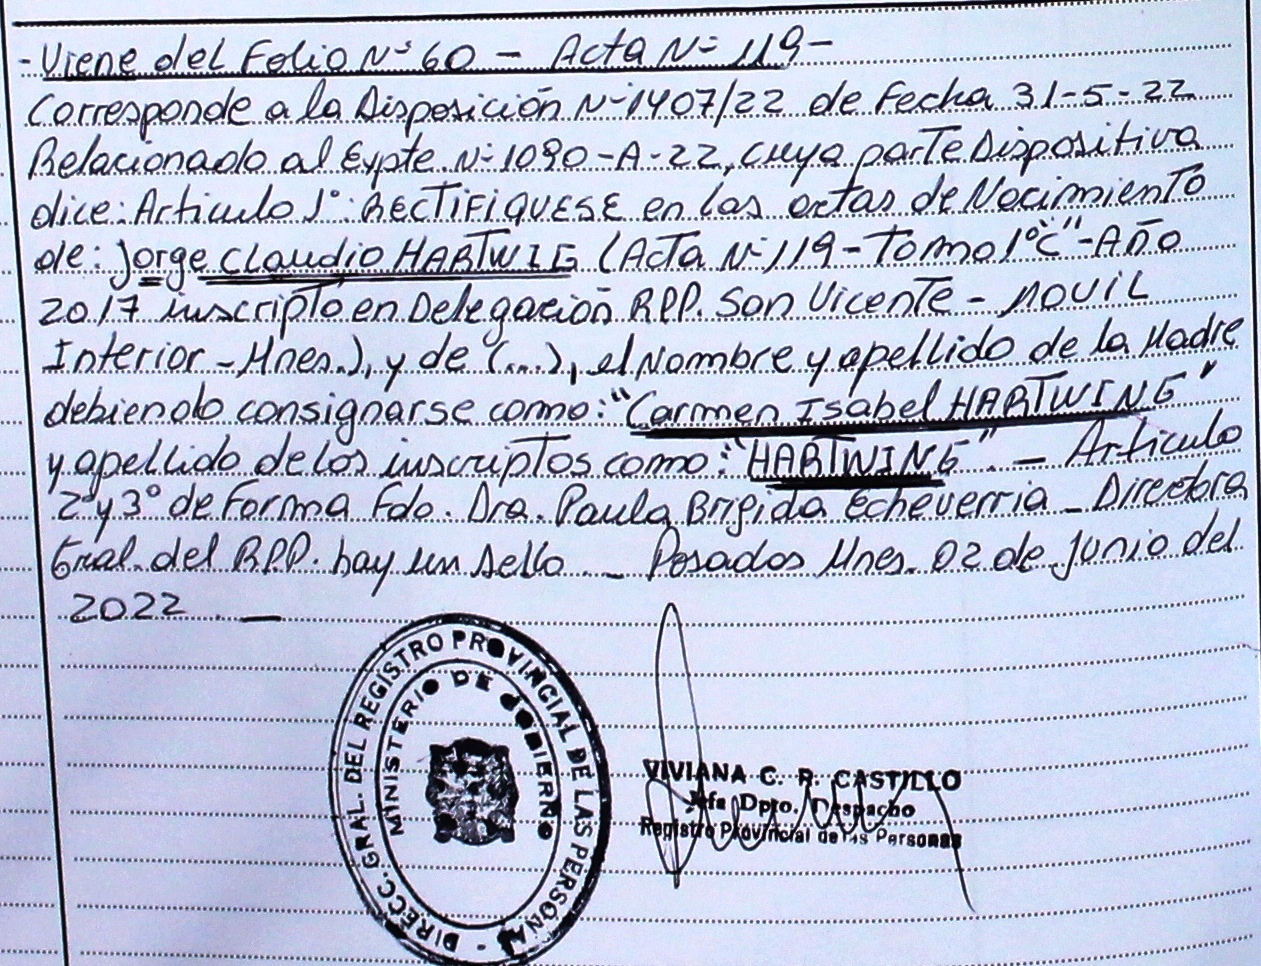 - Viene del Folio Nº 60 - Acta Nº 119 -
Corresponde a la Disposición Nº 1407/22 de Fecha 31-5-22
Relacionado al Expte. Nº 1090-A-22, cuya parte Dispositiva
dice: Articulo 1º: RECTIFIQUESE en las actas de Nacimiento
de: Jorge Claudio HARTWIG (Acta Nº 119 - Tomo 1º "C" - Año
2017 inscripto en Delegación RPP. San Vicente - MOVIL
Interior - Mnes.), y de (...), el Nombre y apellido de la Madre
debiendo consignarse como: "Carmen Isabel HARTWING"
y apellido de los inscriptos como: "HARTWING". - Articulo
2º y 3º de Forma Fdo. Dra. Paula Brigida Echeverria - Directora
Gral. del RPP. hay un sello. - Posadas Mnes. 02 de Junio del
2022. -
DIRECC. GRAL. DEL REGISTRO PROVINCIAL DE LAS PERSONAS -
MINISTERIO DE GOBIERNO
VIVIANA C. R. CASTILLO
Jefa Dpto. Despacho
Registro Provincial de las Personas